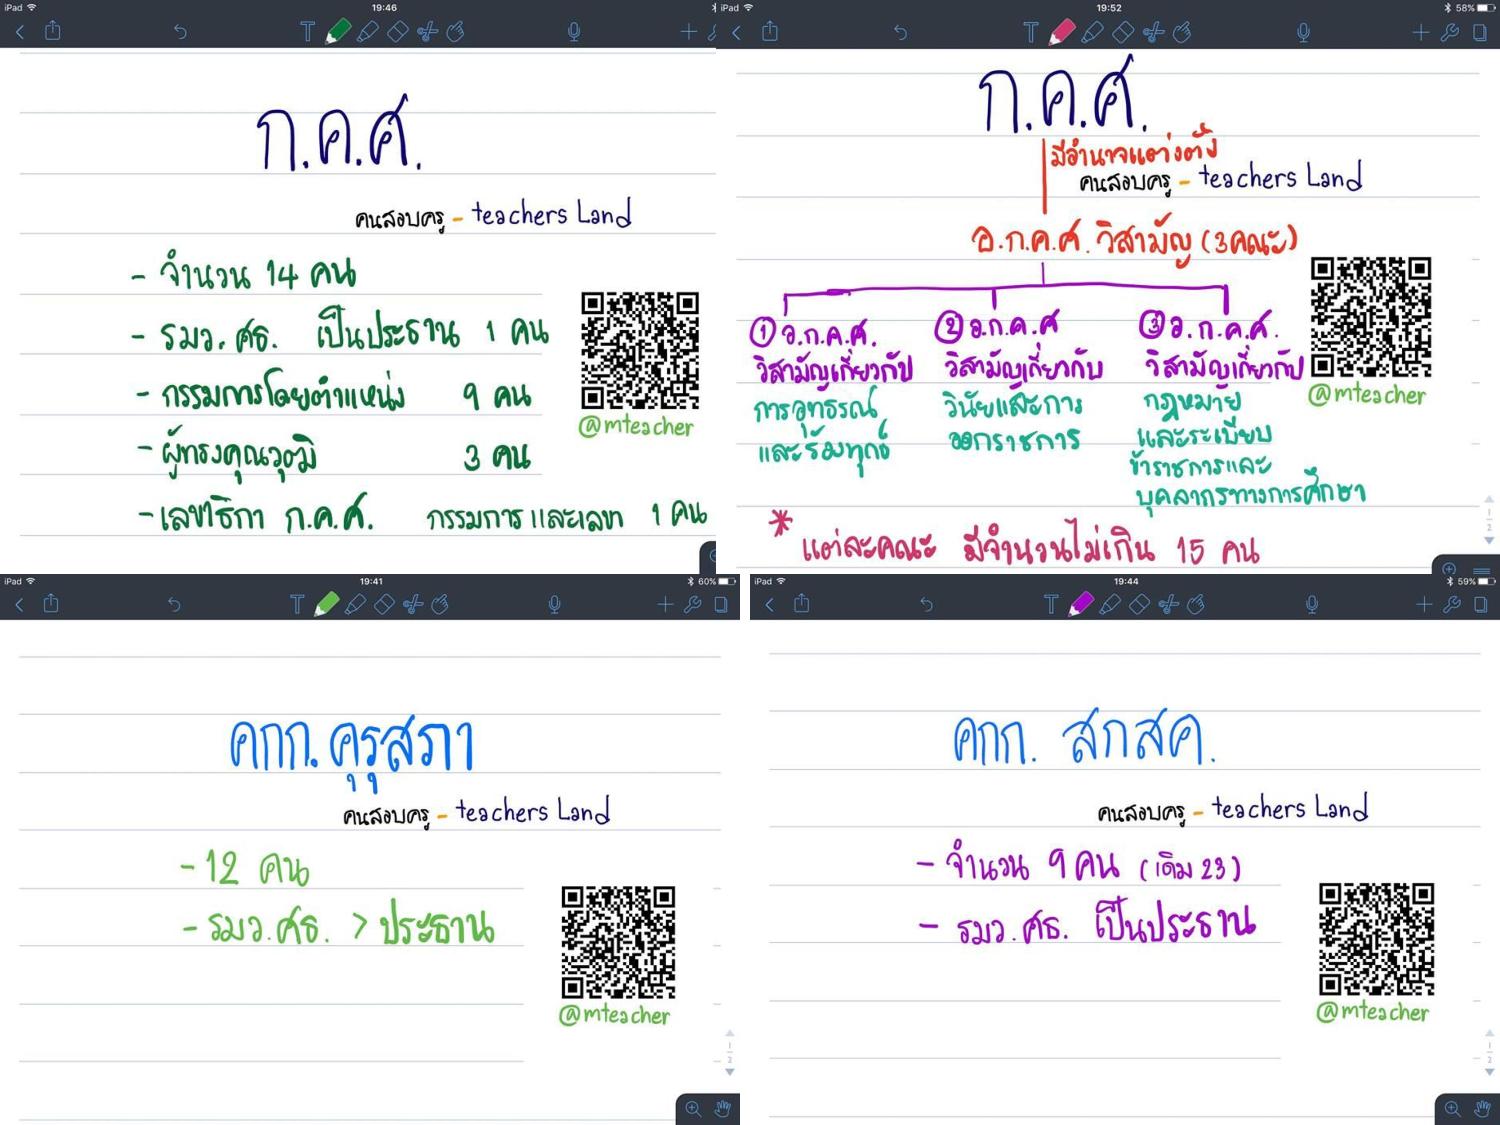 iPad 19:46
ก.ค.ศ.
คนสอบครู - teachers Land
- จำนวน 14 คน
- รมว.ศธ. เป็นประธาน 1 คน
- กรรมการโดยตำแหน่ง 9 คน
- ผู้ทรงคุณวุฒิ 3 คน
- เลขาธิกา ก.ค.ศ. กรรมการและเลขา 1 คน
@mteacher
iPad 19:52 58%
ก.ค.ศ.
มีอำนาจแต่งตั้ง
คนสอบครู - teachers Land
อ.ก.ค.ศ. วิสามัญ (3คณะ)
① อ.ก.ค.ศ.
วิสามัญเกี่ยวกับ
การอุทธรณ์
และร้องทุกข์
② อ.ก.ค.ศ
วิสามัญเกี่ยวกับ
วินัยและการ
ออกราชการ
③ อ.ก.ค.ศ.
วิสามัญเกี่ยวกับ
กฎหมาย
และระเบียบ
ข้าราชการและ
บุคลากรทางการศึกษา
@mteacher
* แต่ละคณะ มีจำนวนไม่เกิน 15 คน
iPad 19:41 60%
คกก. คุรุสภา
คนสอบครู - teachers Land
- 12 คน
- รมว.ศธ. > ประธาน
@mteacher
iPad 19:44 59%
คกก. สกสค.
คนสอบครู - teachers Land
- จำนวน 9 คน (เดิม 23)
- รมว.ศธ. เป็นประธาน
@mteacher